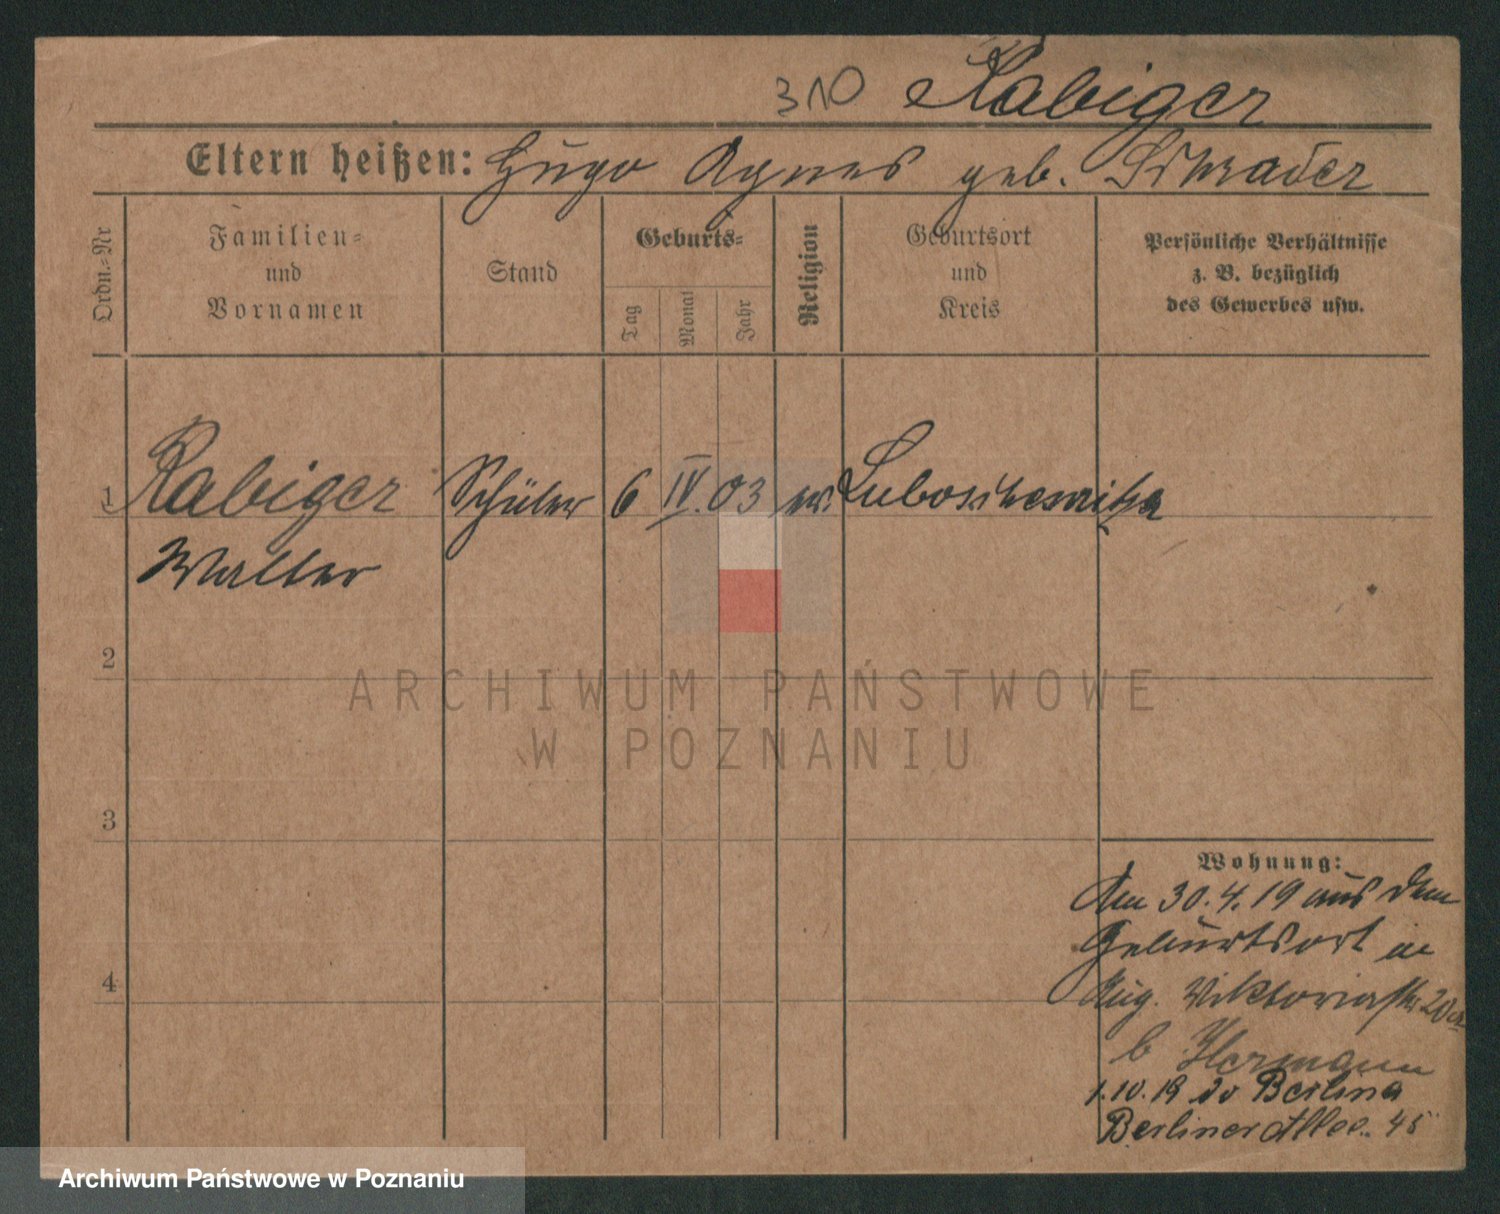 310 Rabiger
Eltern heißen: Hugo Agnes geb. Schrader
Ordn.-Nr
Familien- und Vornamen
Stand
Geburts-
Tag
Monat
Jahr
Religion
Geburtsort und Kreis
Persönliche Verhältnisse
z. B. bezüglich
des Gewerbes usw.
1 Rabiger Schüler 6 IV. 03 ev.
Walter
2
ARCHIWUM PAŃSTWOWE
W POZNANIU
3
Wohnung:
Am 30.4.19 aus dem
Geburtsort in
Aug. Viktoriastr 20
b Hermann
1.10.19 do Berlina
Berliner Allee. 45
4
Archiwum Państwowe w Poznaniu